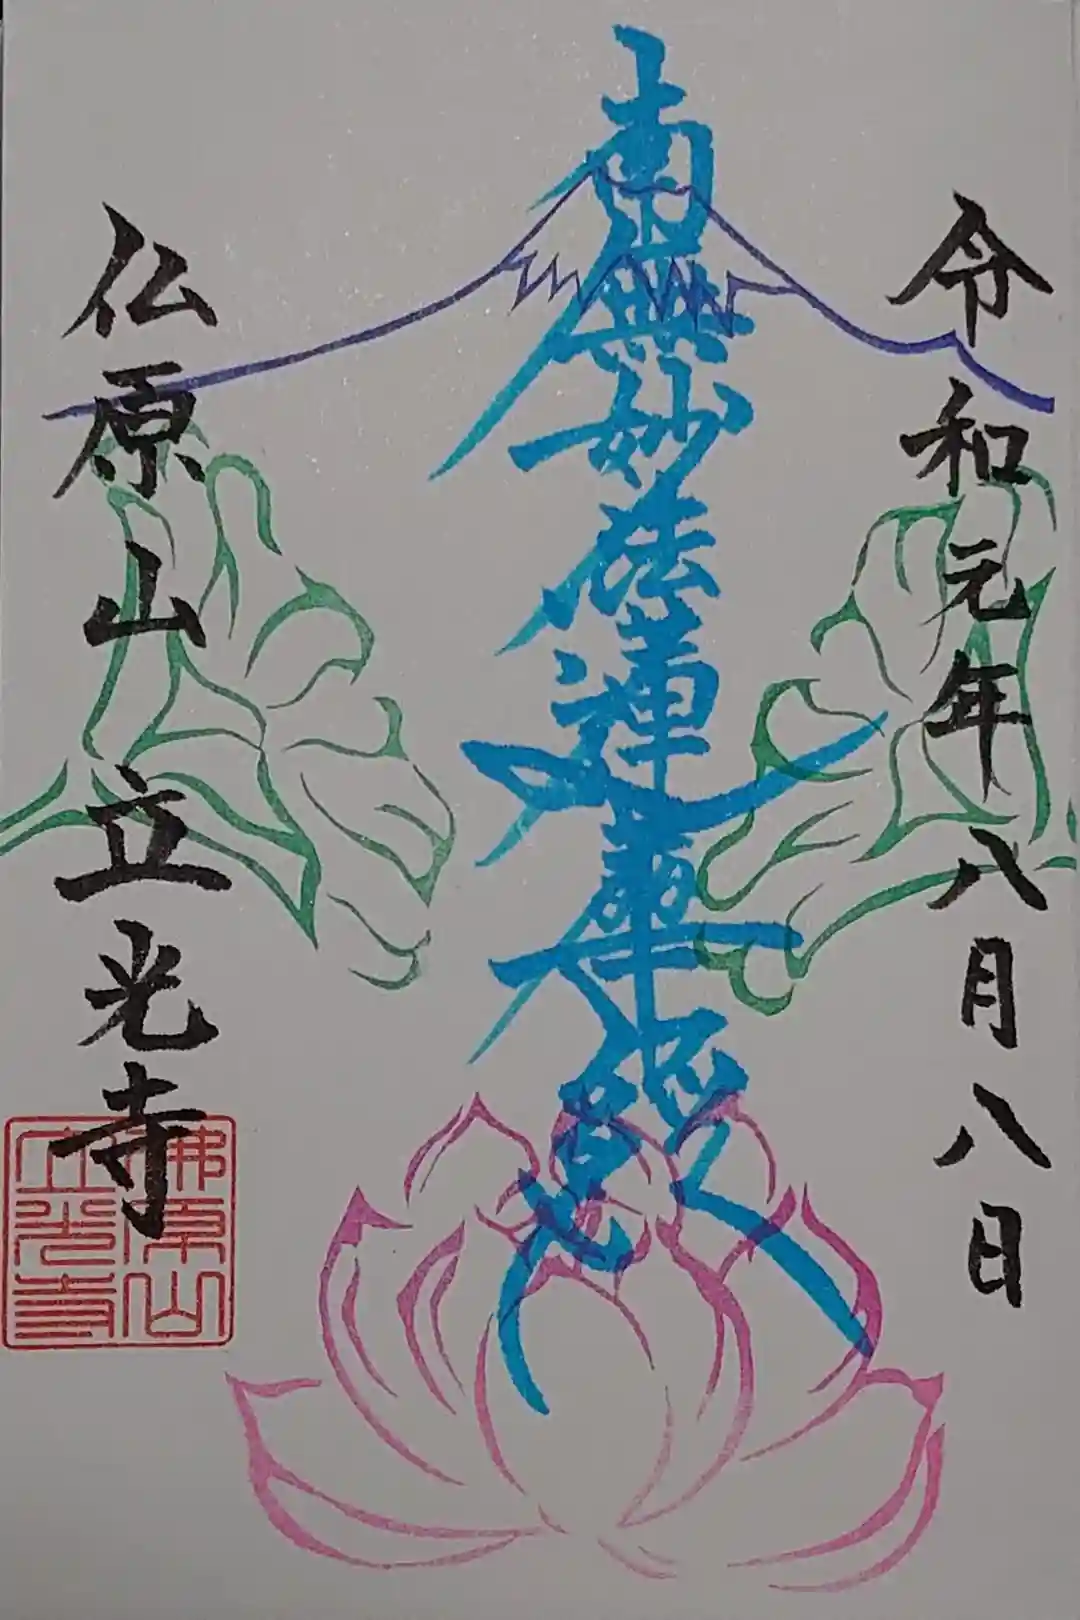 令和元年八月八日
南無妙法蓮華経
仏原山立光寺
佛原山
立光寺